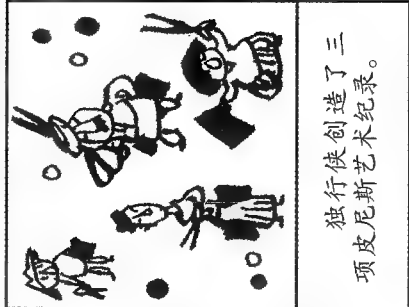 独行侠创造了三
项皮尼斯艺术纪录。